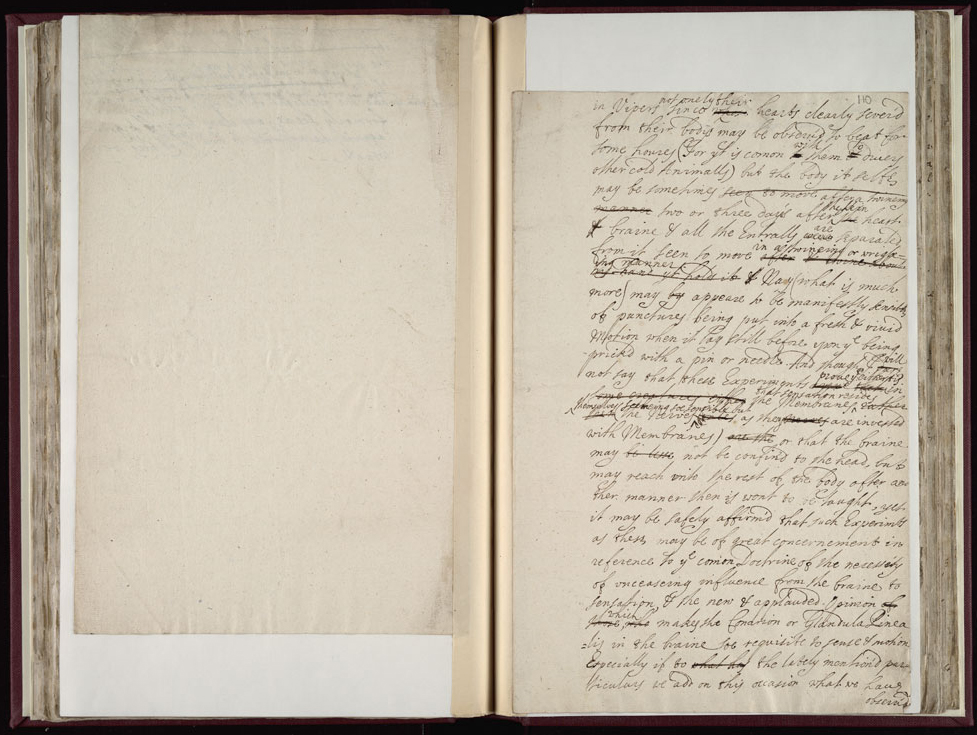 110
in Vipers since not onely their hearts clearly sever'd
from their bodys may be observ'd to beat for
some houres (for yt is comon with them to divers
other cold Animalls) but the body it selfe
may be sometimes seen to move after a twineing
manner two or three days after the skin heart
& braine & all the Entralls are separated
from it seen to move in a twineing or wrigg-
ling manner Nay (what is much
more) may by appeare to be manifestly sensible
of punctures being put into a fresh & vivid
Motion when it lay still before upon ye being
prickd with a pin or needle. And though I will
not say that these Experiments prove either
that sensation resides in
themselves the Membranes
the Nerves as they are invested
with Membranes) are the or that the braine
may be less not be confin'd to the head, but
may reach unto the rest of the body after ano
ther manner then is wont to be taught, yet
it may be safely affirm'd that such Experimts
as these may be of great concernement in
reference to ye comon Doctrine of the necessity
of unceaseing influence from the braine to
sensation, & the new & applauded Opinion of
which makes the Conarion or Glandula Pinea
=lis in the braine soe requisite to sense & motion
Especially if to what has the lately mention'd par
ticulars we add on this occasion what we have
observ'd